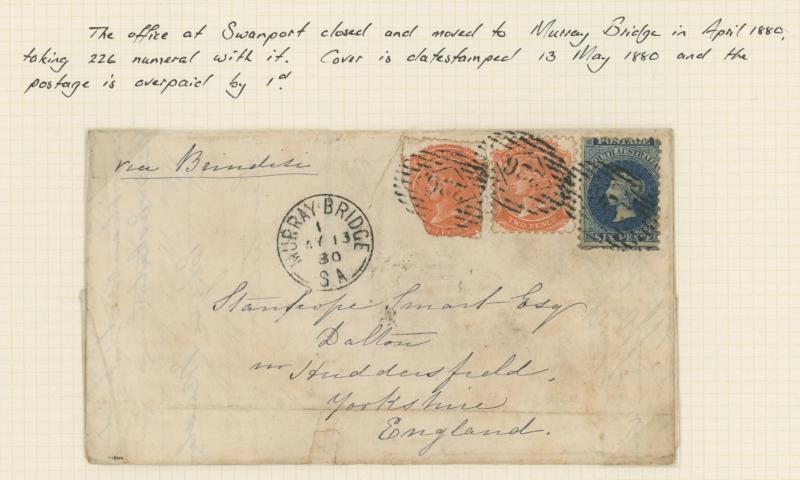 The office at Swanport closed and moved to Murray Bridge in April 1880,
taking 226 numeral with it. Cover is datestamped 13 May 1880 and the
postage is overpaid by 1d.
via Brindisi
POSTAGE
SOUTH AUSTRALIA
TWO PENCE
SIX PENCE
MURRAY BRIDGE
1
MY 13
80
S.A
Stanhope Smart Esq
Dalton
nr Huddersfield,
Yorkshire
England.